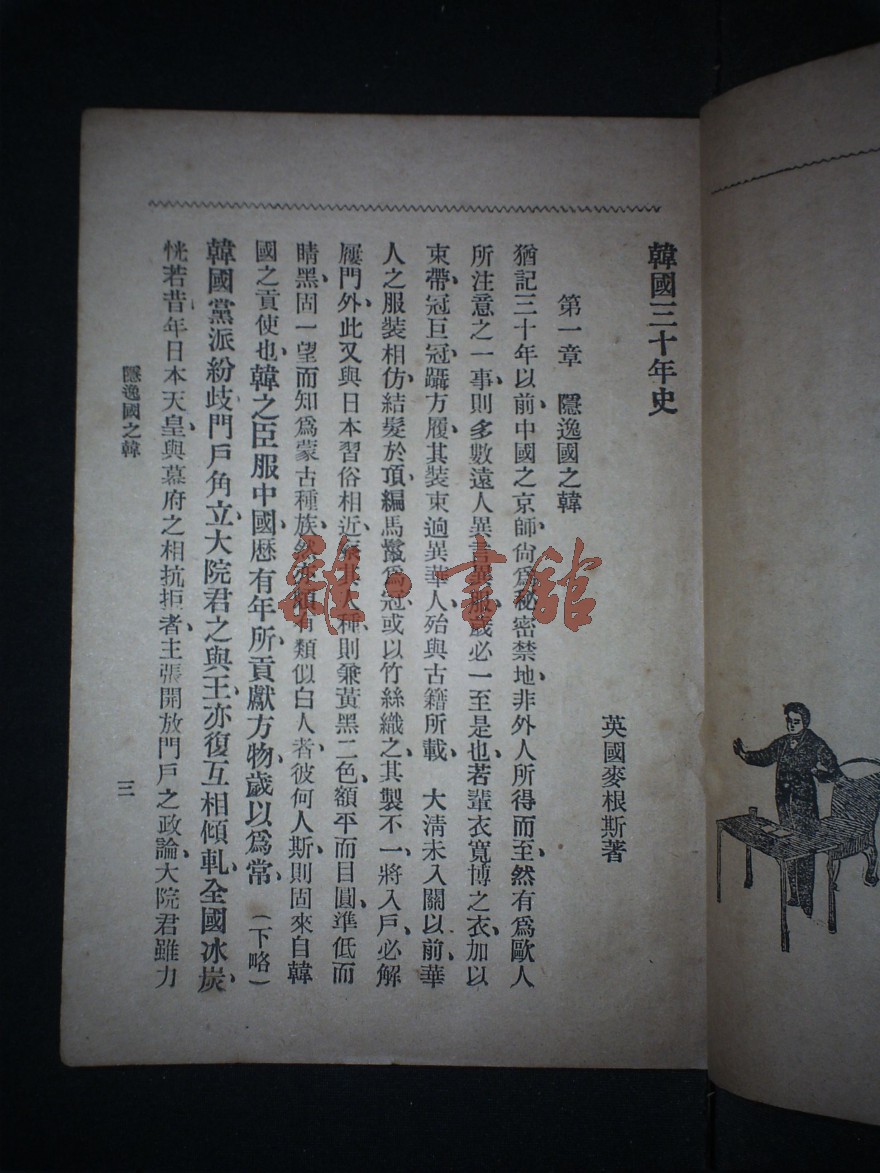 韓國三十年史
英國麥根斯著
第一章　隱逸國之韓
猶記三十年以前、中國之京師、尙爲秘密禁地、非外人所得而至、然有爲歐人
所注意之一事、則多數遠人異書異服、歲必一至是也、若輩衣寬博之衣、加以
束帶、冠巨冠、躡方履、其裝束迥異華人、殆與古籍所載　大清未入關以前、華
人之服裝相仿、結髮於頂、編馬鬃爲冠、或以竹絲織之、其製不一、將入戶、必解
屨門外、此又與日本習俗相近、其人種則兼黃黑二色、額平而目圓、準低而
睛黑、固一望而知爲蒙古種族、然亦頗有類似白人者、彼何人斯、則固來自韓
國之貢使也、韓之臣服中國、歷有年所、貢獻方物、歲以爲常、（下略）
韓國黨派紛歧、門戶角立、大院君之與王、亦復互相傾軋、全國冰炭、
恍若昔年日本天皇與幕府之相抗拒者、主張開放門戶之政論、大院君雖力
隱逸國之韓
三
雜·書館